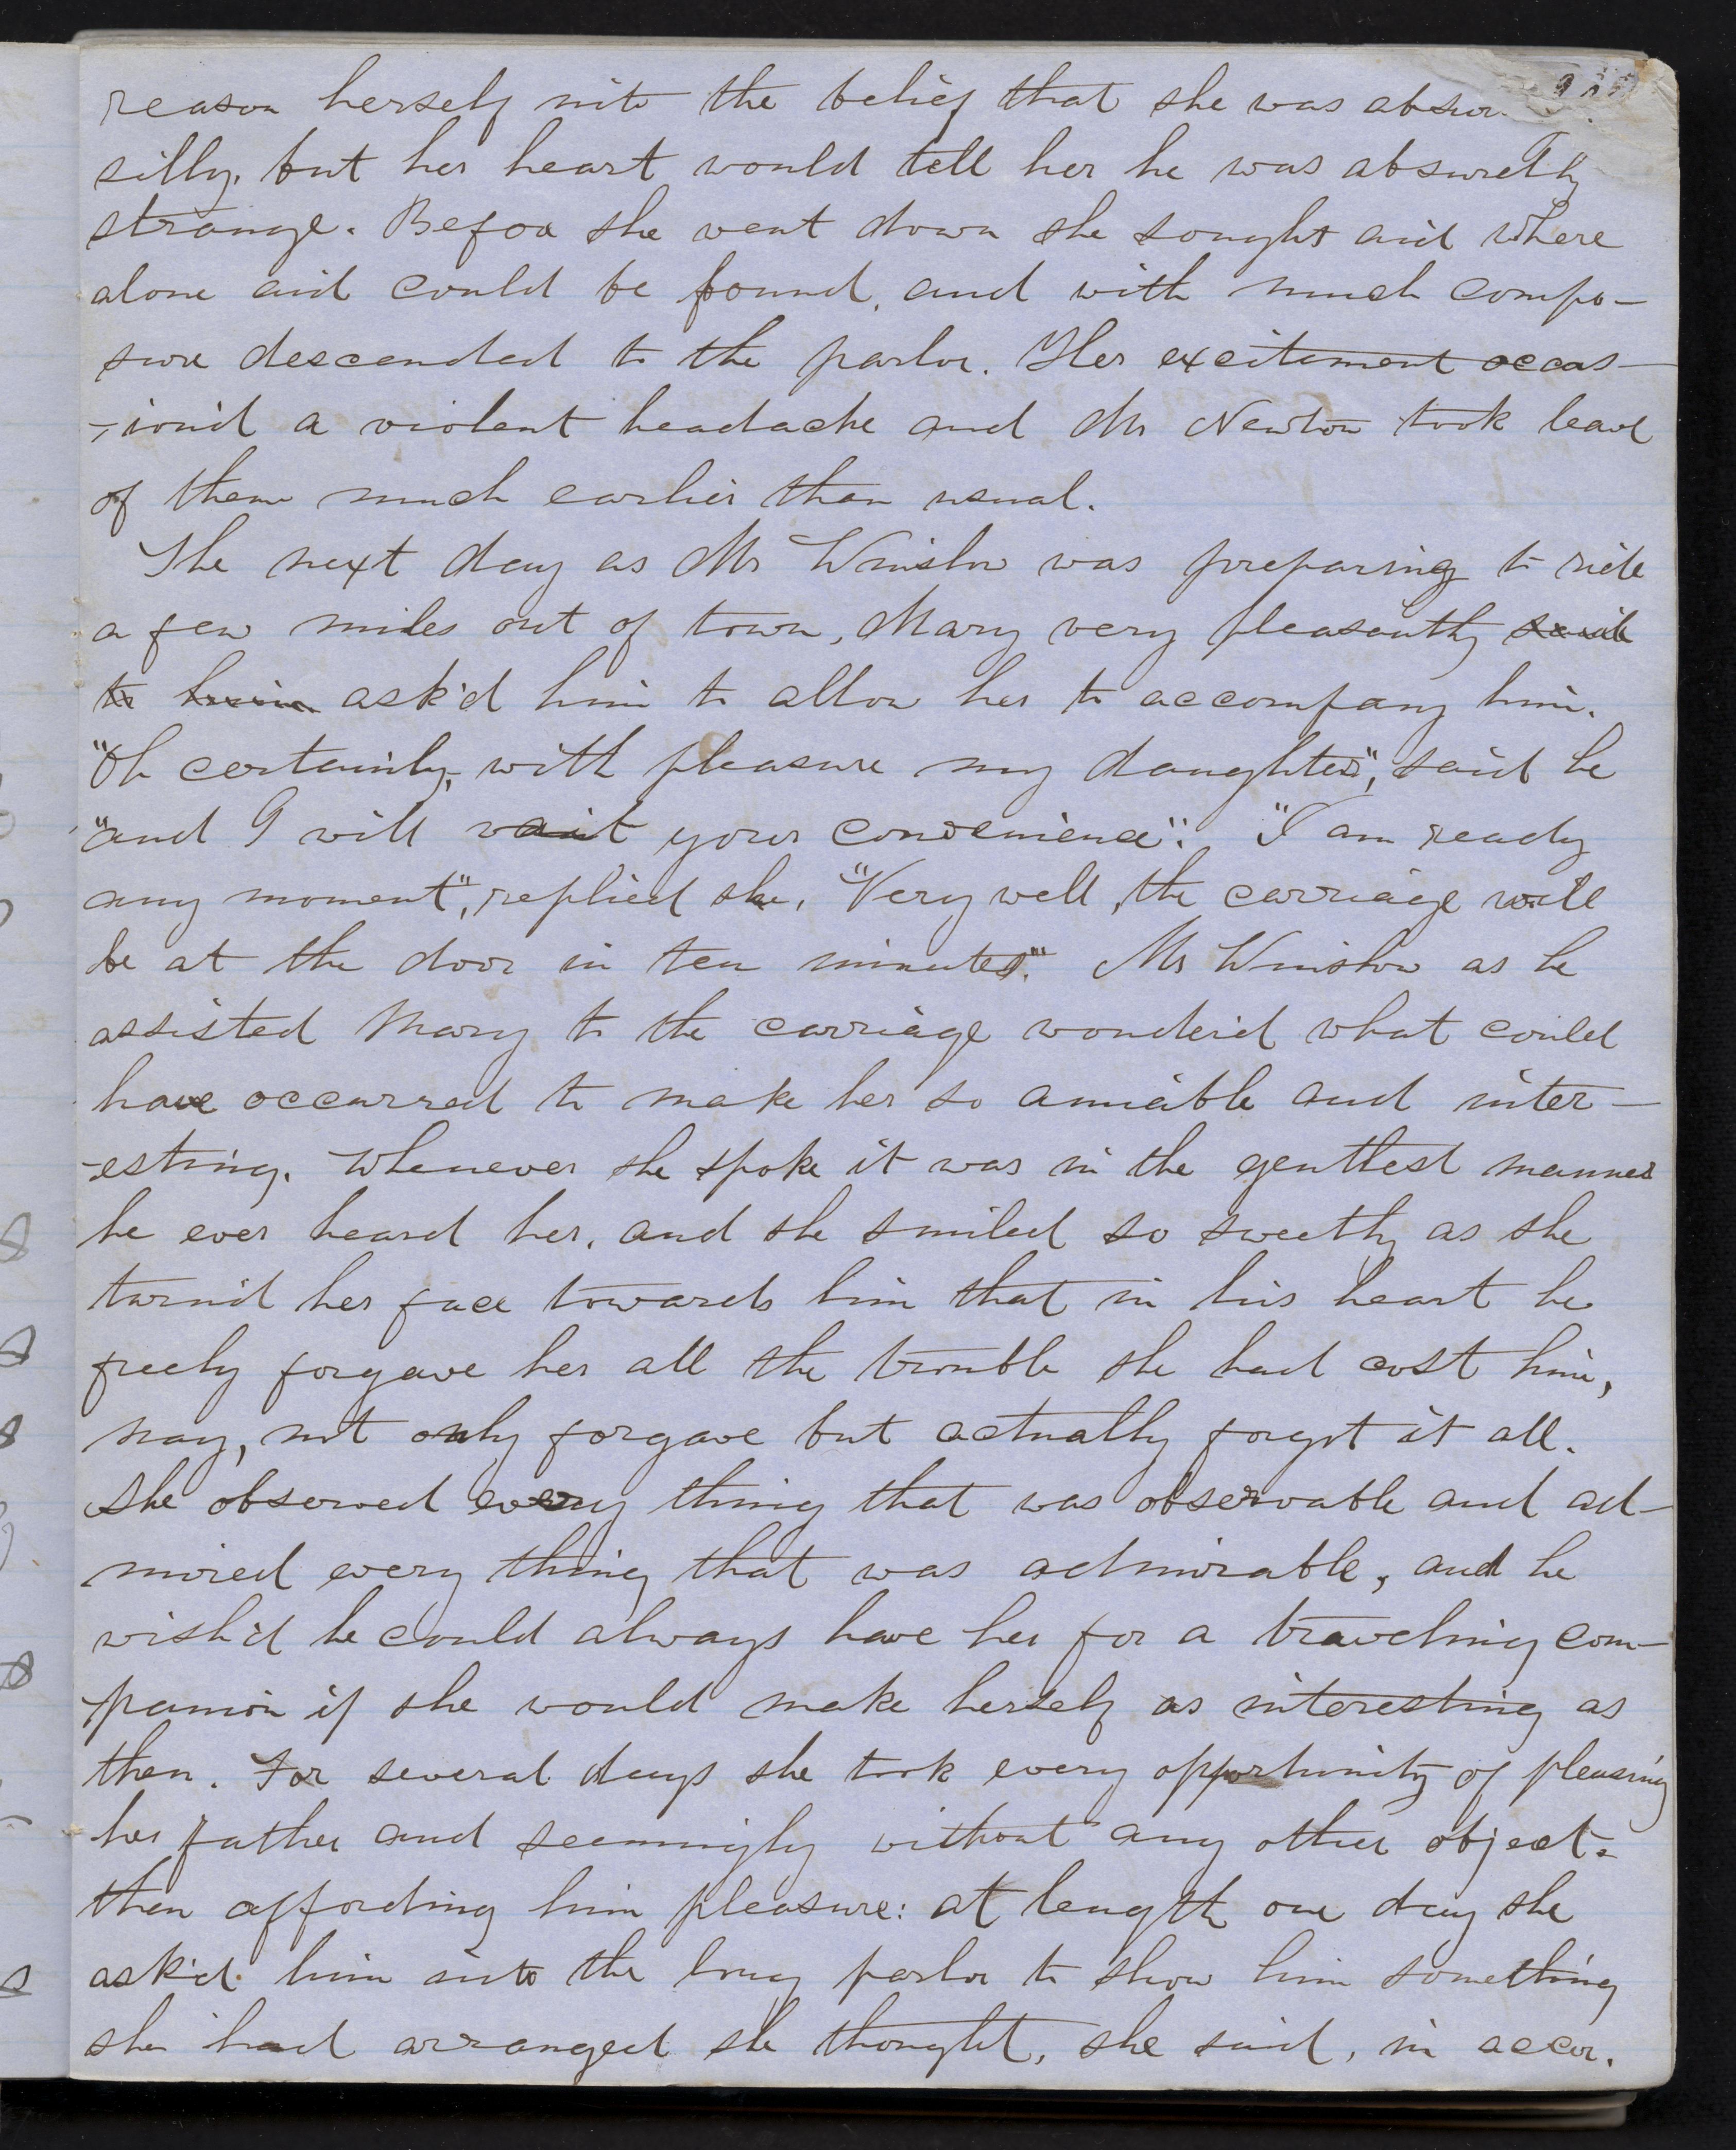 reason herself into the belief that she was absur
silly, but her heart would tell her he was absurdly
strange. Before she went down she sought aid where
alone aid could be found, and with much compo-
sure descended to the parlor. Her excitement occas-
-ion'd a violent headache and Mr Newton took leave
of them much earlier than usual.
The next day as Mr Winslow was preparing to ride
a few miles out of town, Mary very pleasantly said
to him ask'd him to allow her to accompany him.
"Oh certainly, with pleasure my daughter", said he
"and I will wait your convenience". "I am ready
any moment", replied she. "Very well, the carriage will
be at the door in ten minutes". Mr Winslow as he
assisted Mary to the carriage wonder'd what could
have occurred to make her so amiable and inter-
-esting. Whenever she spoke it was in the gentlest manner
he ever heard her, and she smiled so sweetly as she
turn'd her face towards him that in his heart he
freely forgave her all the trouble she had cost him,
nay, not only forgave but actually forgot it all.
She observed every thing that was observable and ad-
mired every thing that was admirable, and he
wish'd he could always have her for a traveling com-
panion if she would make herself as interesting as
then. For several days she took every opportunity of pleasing
her father and seemingly without any other object.
than affording him pleasure: at length one day she
ask'd him into the long parlor to show him something
she had arranged she thought, she said, in accor.